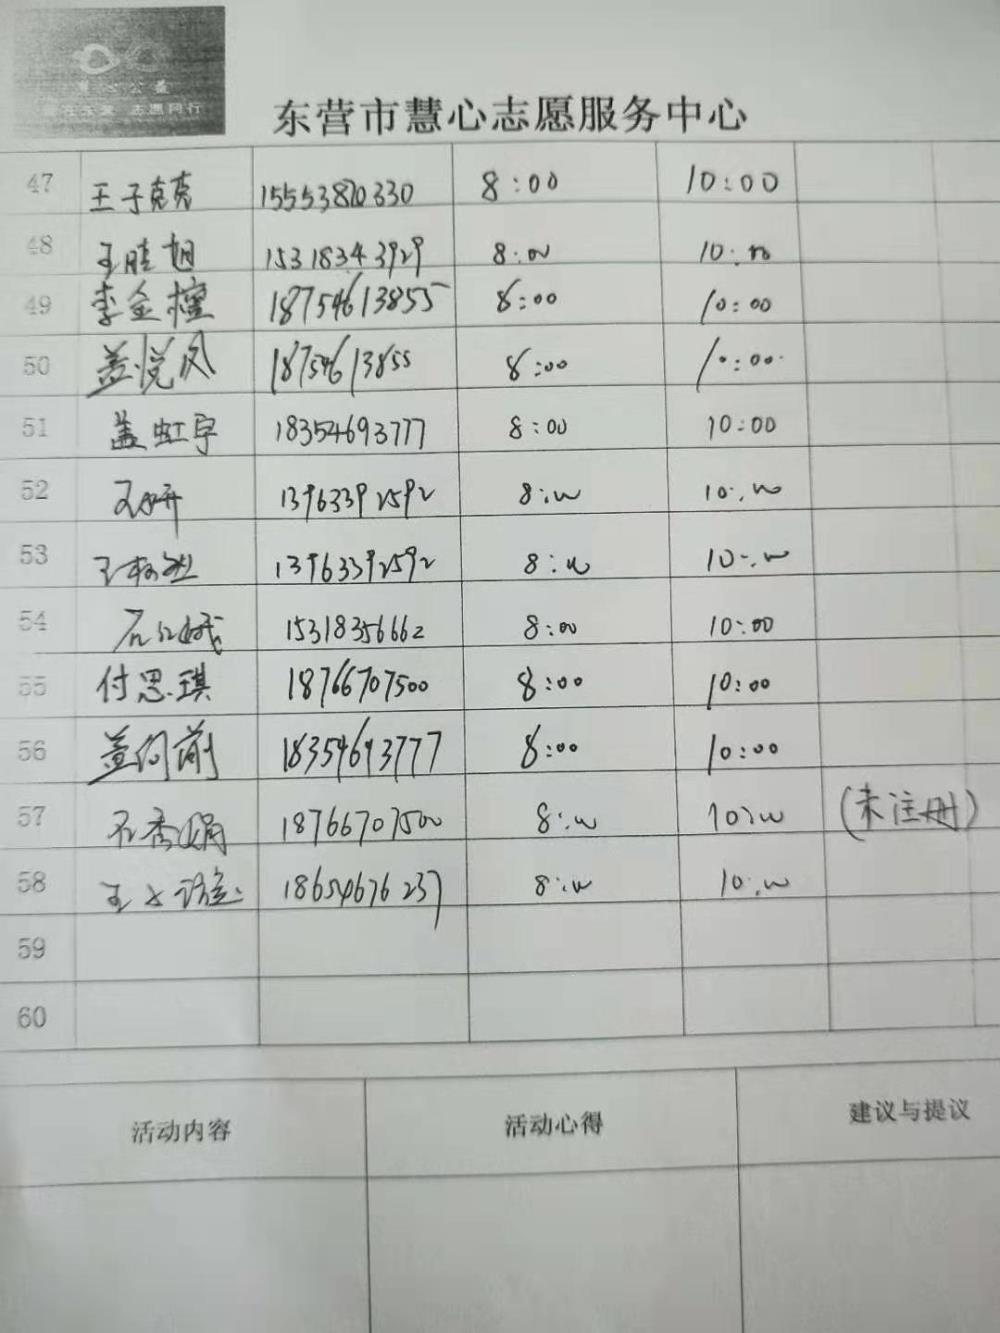 公益
志愿同行
东营市慧心志愿服务中心
47 王子克 8:00 10:00
48 王胜旭 15318343929 8:00 10:00
49 李金檀 18754613855 8:00 10:00
50 盖悦风 18754613855 8:00 10:00
51 盖虹宇 18354693777 8:00 10:00
52 王妍 13963392592 8:00 10:00
53 王 13963392592 8:00 10:00
54 石 15318356662 8:00 10:00
55 付思琪 18766707500 8:00 10:00
56 盖向前 18354693777 8:00 10:00
57 石秀娟 18766707500 8:00 10:00 (未注册)
58 王文 18654676237 8:00 10:00
59
60
活动内容 活动心得 建议与提议